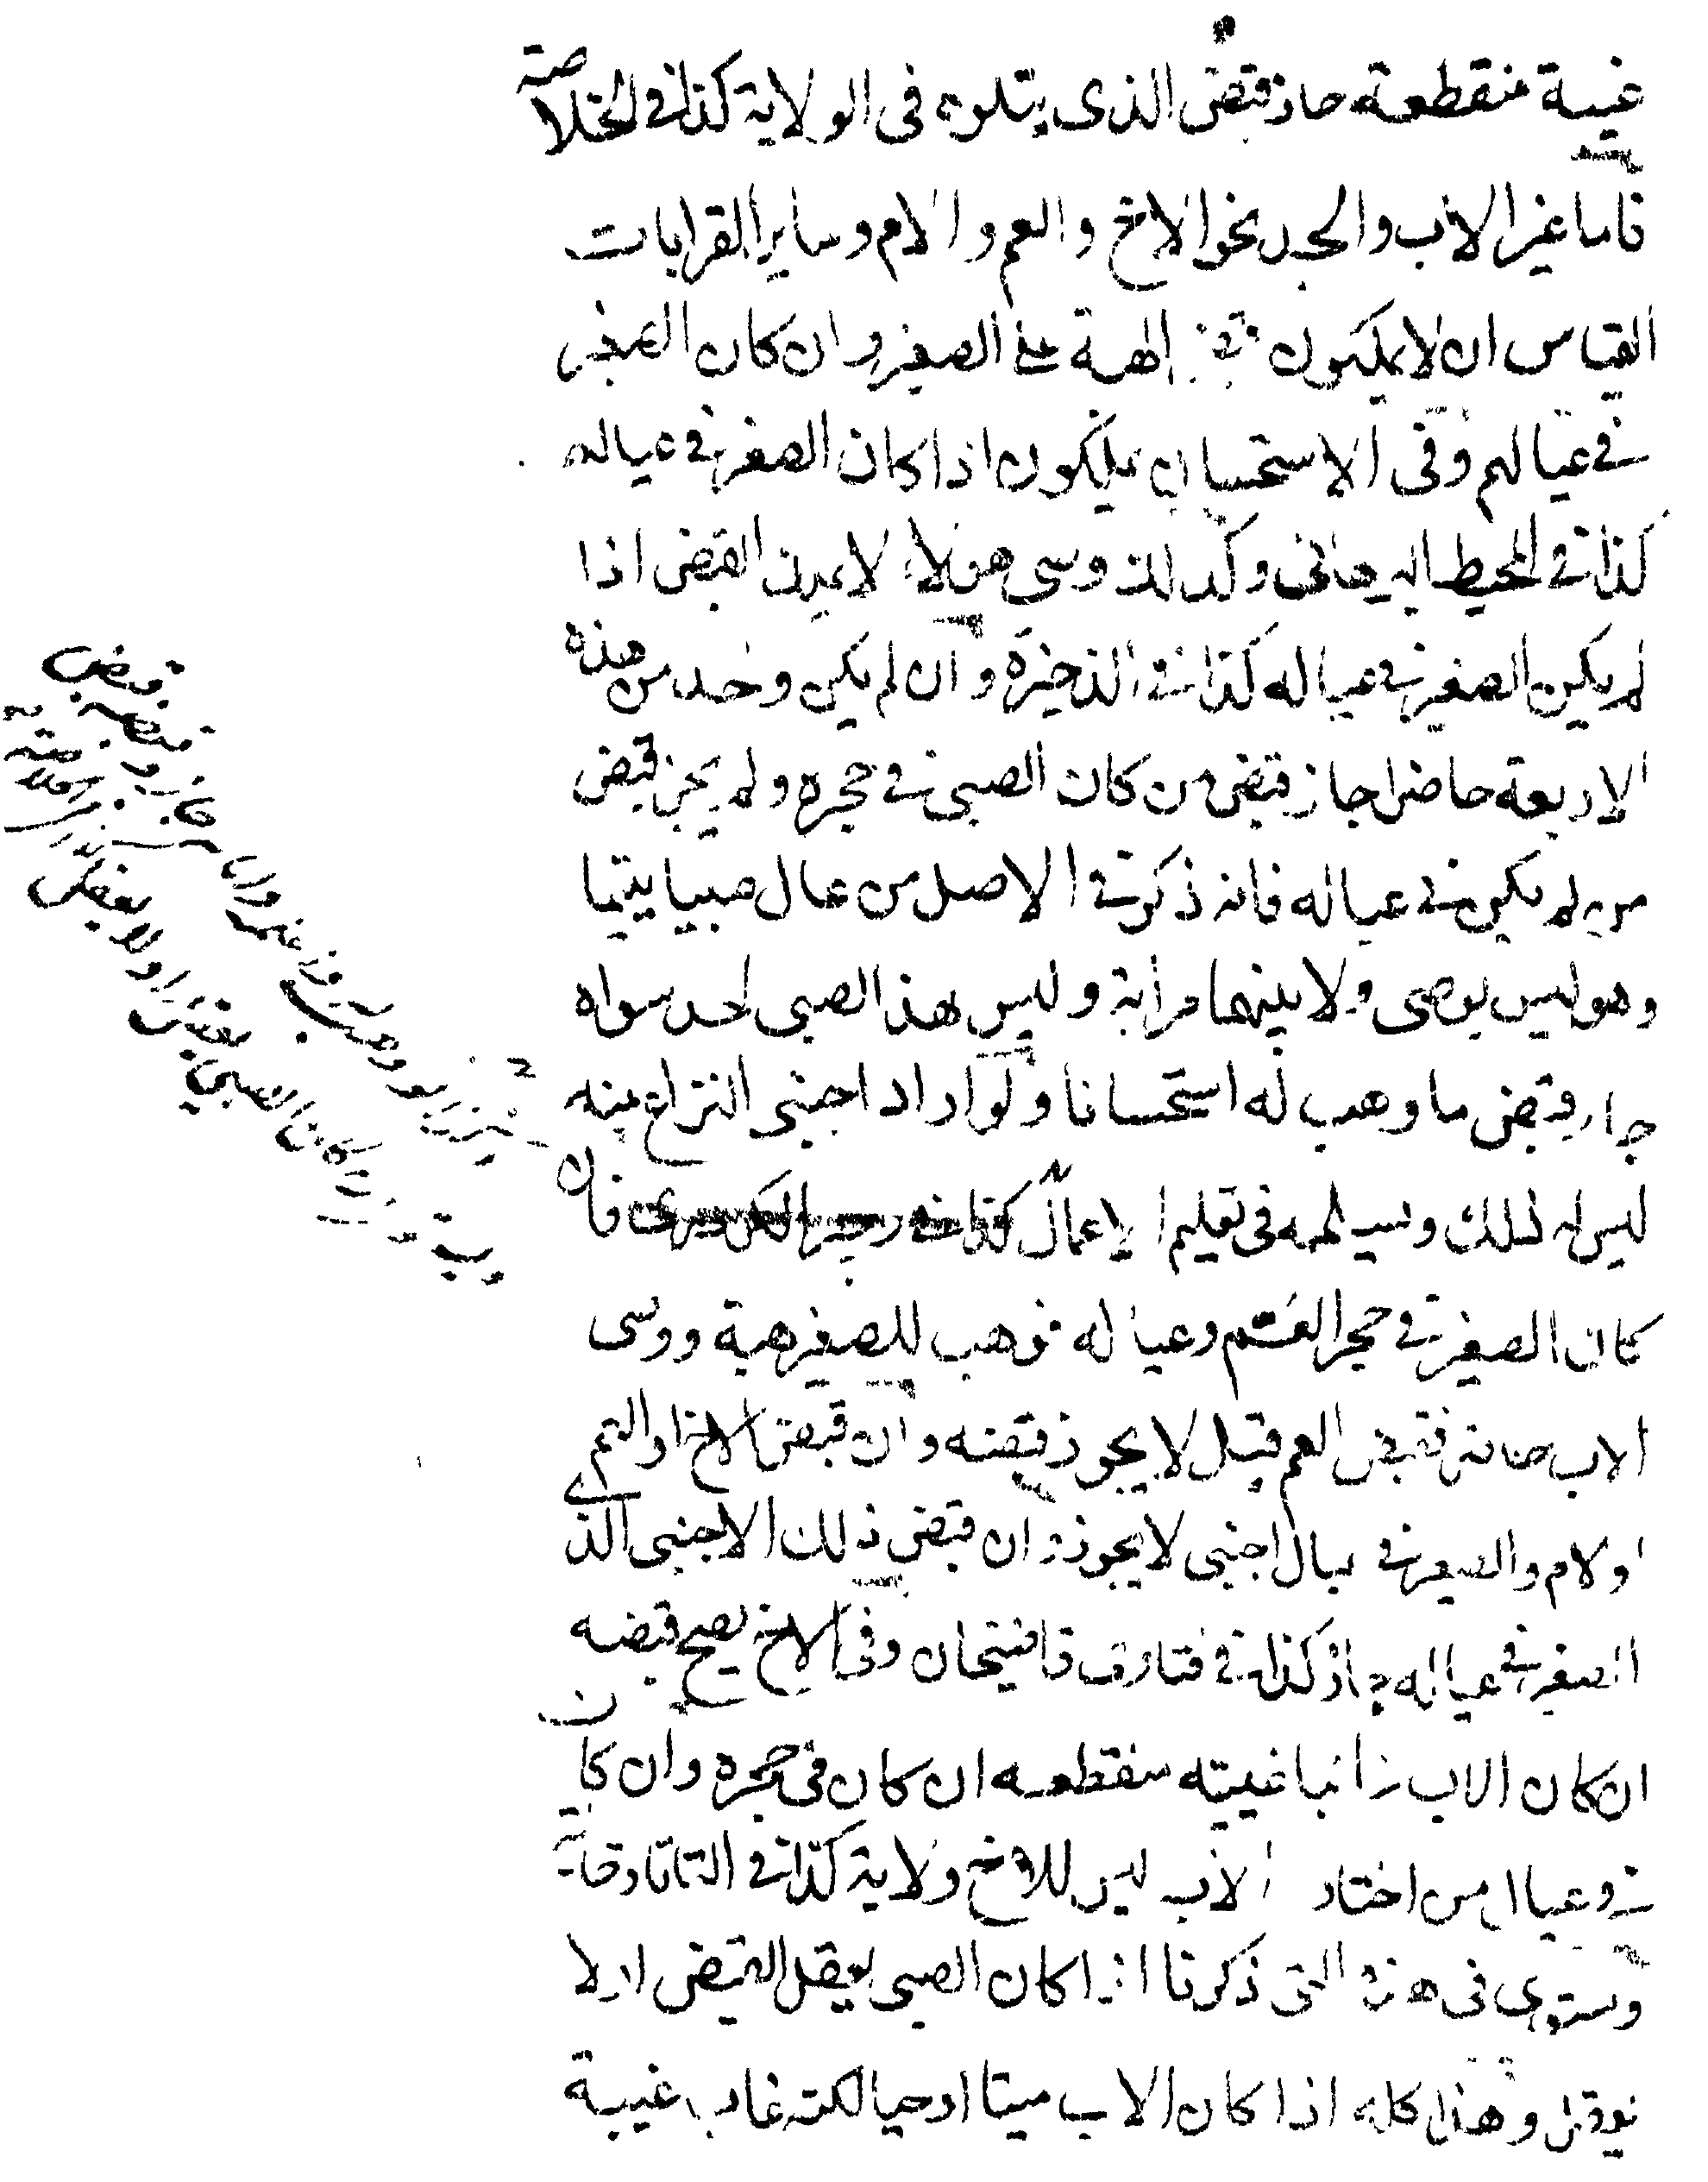 غيبة منقطعة جاز قبض الذى يتلوه فى الولاية كذا فى الخلاصة
فاما غير الاب والجد نحو الاخ والعم والام وساير القرابات
القياس ان لا يملكون قبض الهبة على الصغير وان كان الصغير
فى عيالهم وفى الاستحسان يملكون اذا كان الصغير فى عياله
كذا فى المحيط البرهانى وكذلك وصى هولاء لا يملك القبض اذا
لم يكن الصغير فى عياله كذا فى الذخيرة وان لم يكن وحد من هذه
الاربعة حاضرا جاز قبض من كان الصبى فى حجره ولم يجز قبض
من لم يكن فى عياله فانه ذكر فى الاصل من عال صبيا يتيما
وهو ليس بوصى ولا بينهما قرابة وليس لهذا الصبى احد سواه
جاز قبض ما وهب له استحسانا ولو اراد اجنبى النزاع منه
ليس له ذلك ويسلمه فى تعليم الاعمال كذا فى فان
كان الصغير فى حجر العم وعياله فوهب للصغير هبة ووصى
الاب حاضر فقبض العم قيل لا يجوز قبضه وان قبض الاخ او العم
او لام والصغير فى عيال اجنبى لا يجوز وان قبض ذلك الاجنبى الذى
الصغير فى عياله جاز كذا فى فتاوى قاضيخان وفى الاخ يصح قبضه
ان كان الاب غائبا غيبته منقطعه ان كان فى حجره وان كان
فى عيال من اختار الاب ليس للاخ ولاية كذا فى التاتارخانية
ويستوى فى هذه التى ذكرنا اذا كان الصبى يعقل القبض او لا
يعقل وهذا كله اذا كان الاب ميتا او حيا لكنه غاب غيبة